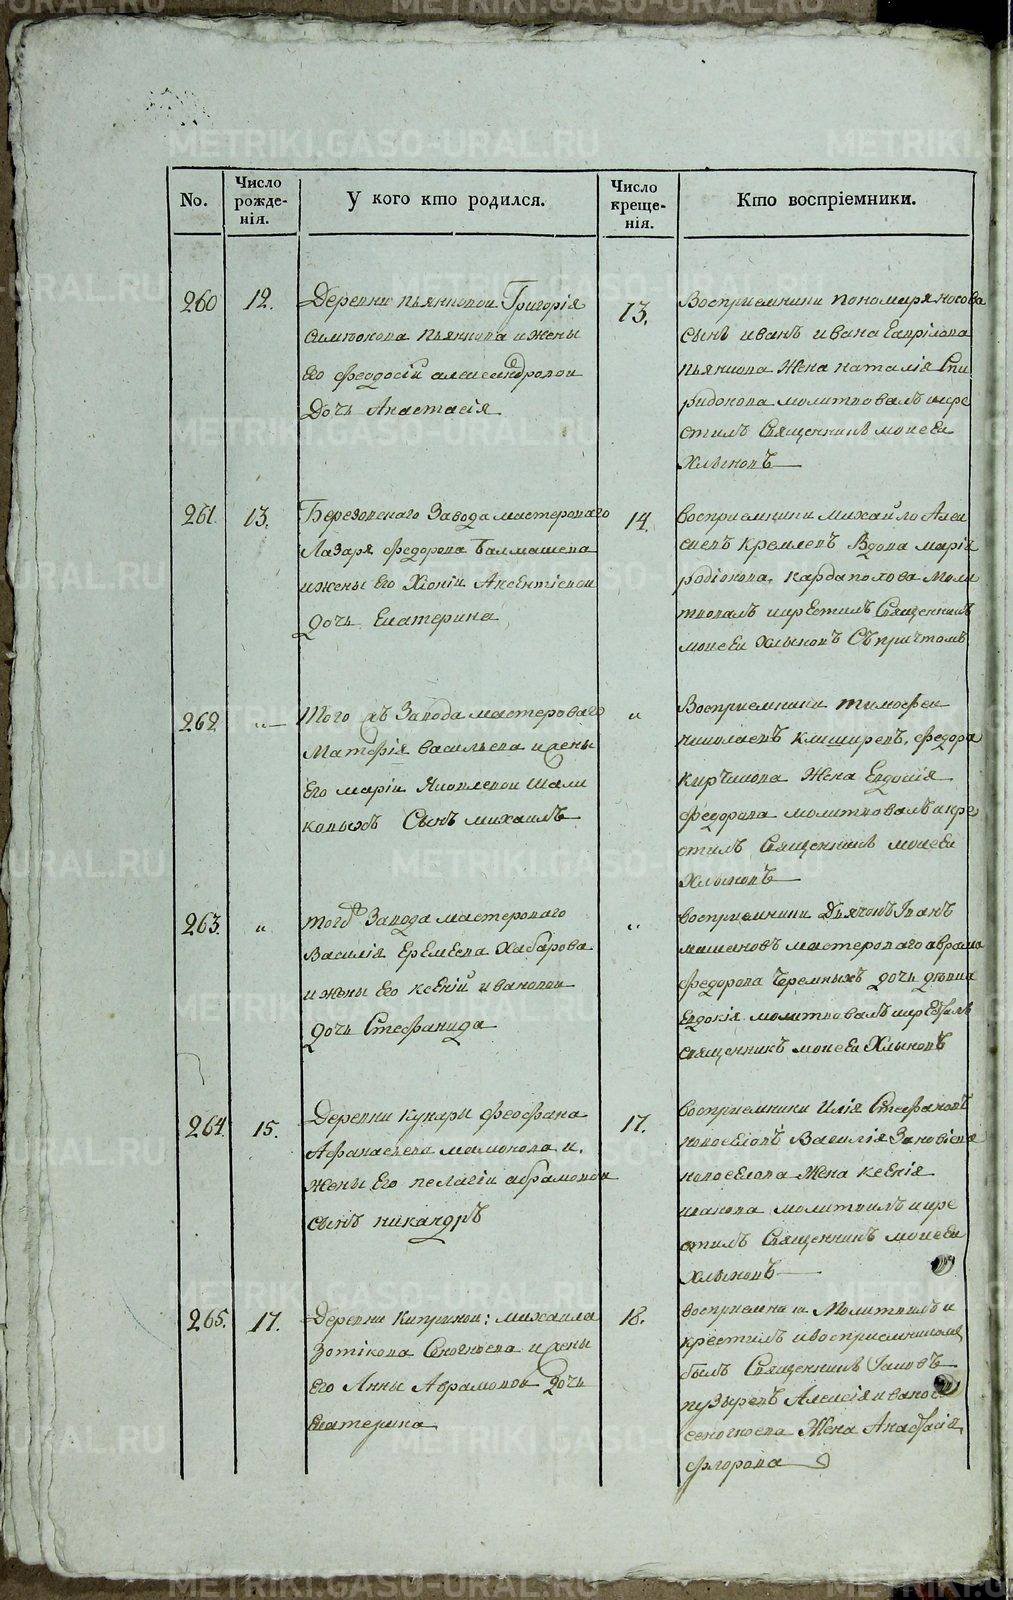 No.
Число рожде-
нія.
У кого кто родился.
Число креще-
нія.
Кто воспріемники.
260
12.
Деревни пьянковой Григорія
Симіонова Пьянкова и жены
Его Феодосіи александровой
Дочь Анастасія
13.
Восприемники пономаря носова
сынъ иванъ ивана Гаврілова
пьянкова Жена наталія Спи
ридонова молитвовалъ и кре
стилъ Священникъ моисеи
Хлыновъ
261.
13.
Березовскаго Завода мастероваго
Лазаря Федорова Балмашева
и жены Его Хіоніи Аксентіевои
дочь Екатерина
14.
восприемники михайло Алек
сеевъ Кремлевъ Вдова маріа
родіонова Кардаполова Моли
твовалъ и крЕстилъ Священникъ
моисеи Хлыновъ Съ причтомъ
262
"
Того жъ Завода мастероваго
Матфія васильева и жены
Его маріи Яковлевои Шали
ковыхъ Сынъ михаилъ
"
Восприемники тимофеи
николаевъ Федора
Кирчикова Жена Евдокія
Федорова молитвовалъ и кре
стилъ Священникъ моисеи
Хлыновъ
263.
"
тогож Завода мастероваго
Василія ЕрЕмЕева Хабарова
и жены Его ксЕніи ивановои
дочь Стефанида
"
восприемники Дьячокъ Іванъ
мастероваго аврама
Федорова Черемныхъ дочь девица
Евдокія молитвовалъ и крЕстилъ
священникъ моисеи Хлыновъ
264.
15.
Деревни Кунары Феофана
Афанасьева мамонова и
жены Его пелагіи абрамовои
сынъ никандръ
17.
восприемники Илія Стефановъ
новоселовъ Василія Зиновіева
новоселова Жена ксЕнія
иванова молитвилъ и кре
стилъ Священникъ моисеи
Хлыновъ
265.
17.
Деревни Киприной: михаила
Зотікова Сеногноева и жены
Его Анны Аврамовои дочь
Екатерина
18.
восприемники Молитвилъ и
крестилъ и восприемникомъ
былъ Священникъ Іаковъ
пузыревъ Алексія иванова
сеногноева Жена Анастасія
Флорова
METRIKI.GASO-URAL.RU